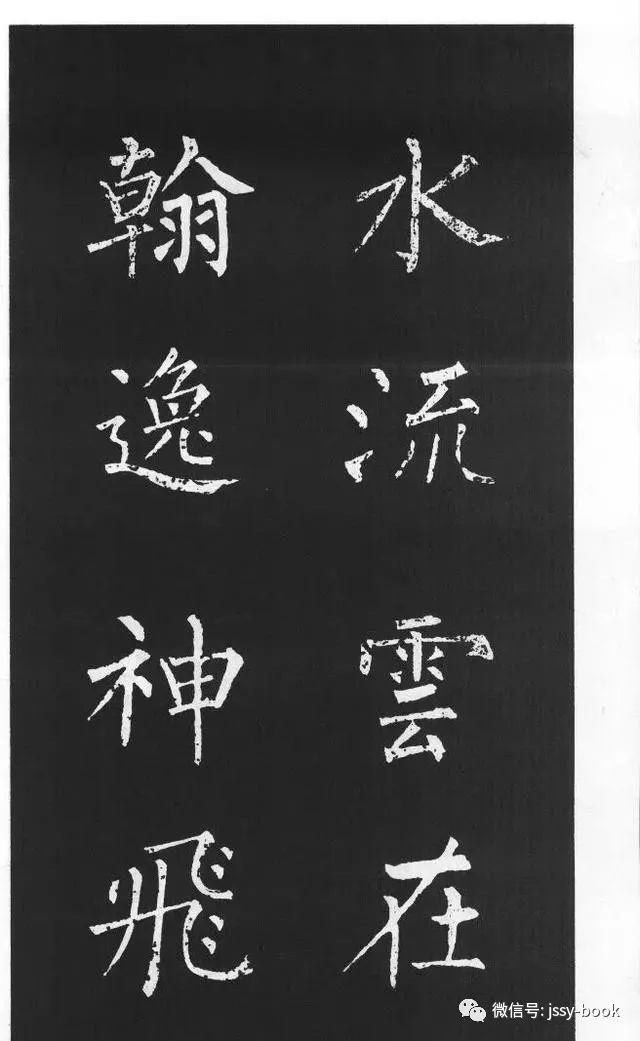 水流雲在
翰逸神飛
微信号: jssy-book